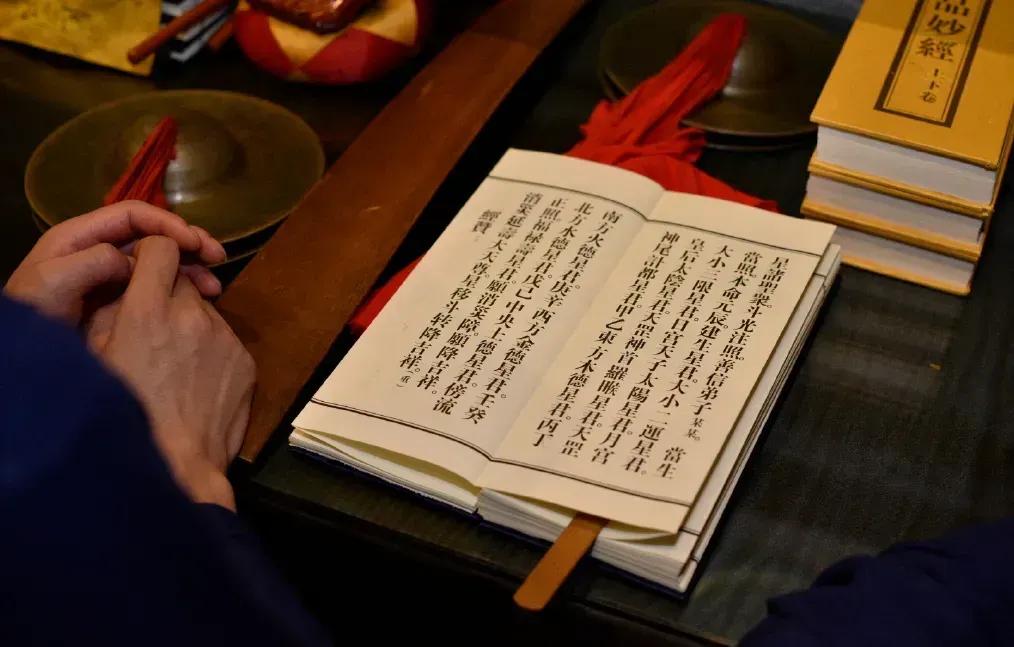 星諸聖衆。斗光注照。善信弟子某某。當生
當照。本命元辰。建生星君。大小二運星君。
大小三限星君。日宮天子太陽星君。月宮
皇后太陰星君。天罡神首羅睺星君。天罡
神尾計都星君。甲乙東方木德星君。丙丁
南方火德星君。庚辛西方金德星君。壬癸
北方水德星君。戊己中央土德星君。榜流
正照。福祿壽星君。願消災障。願降吉祥。
消災延壽大天尊。星移斗转降吉祥。(重)
經贊
品妙經
上下卷